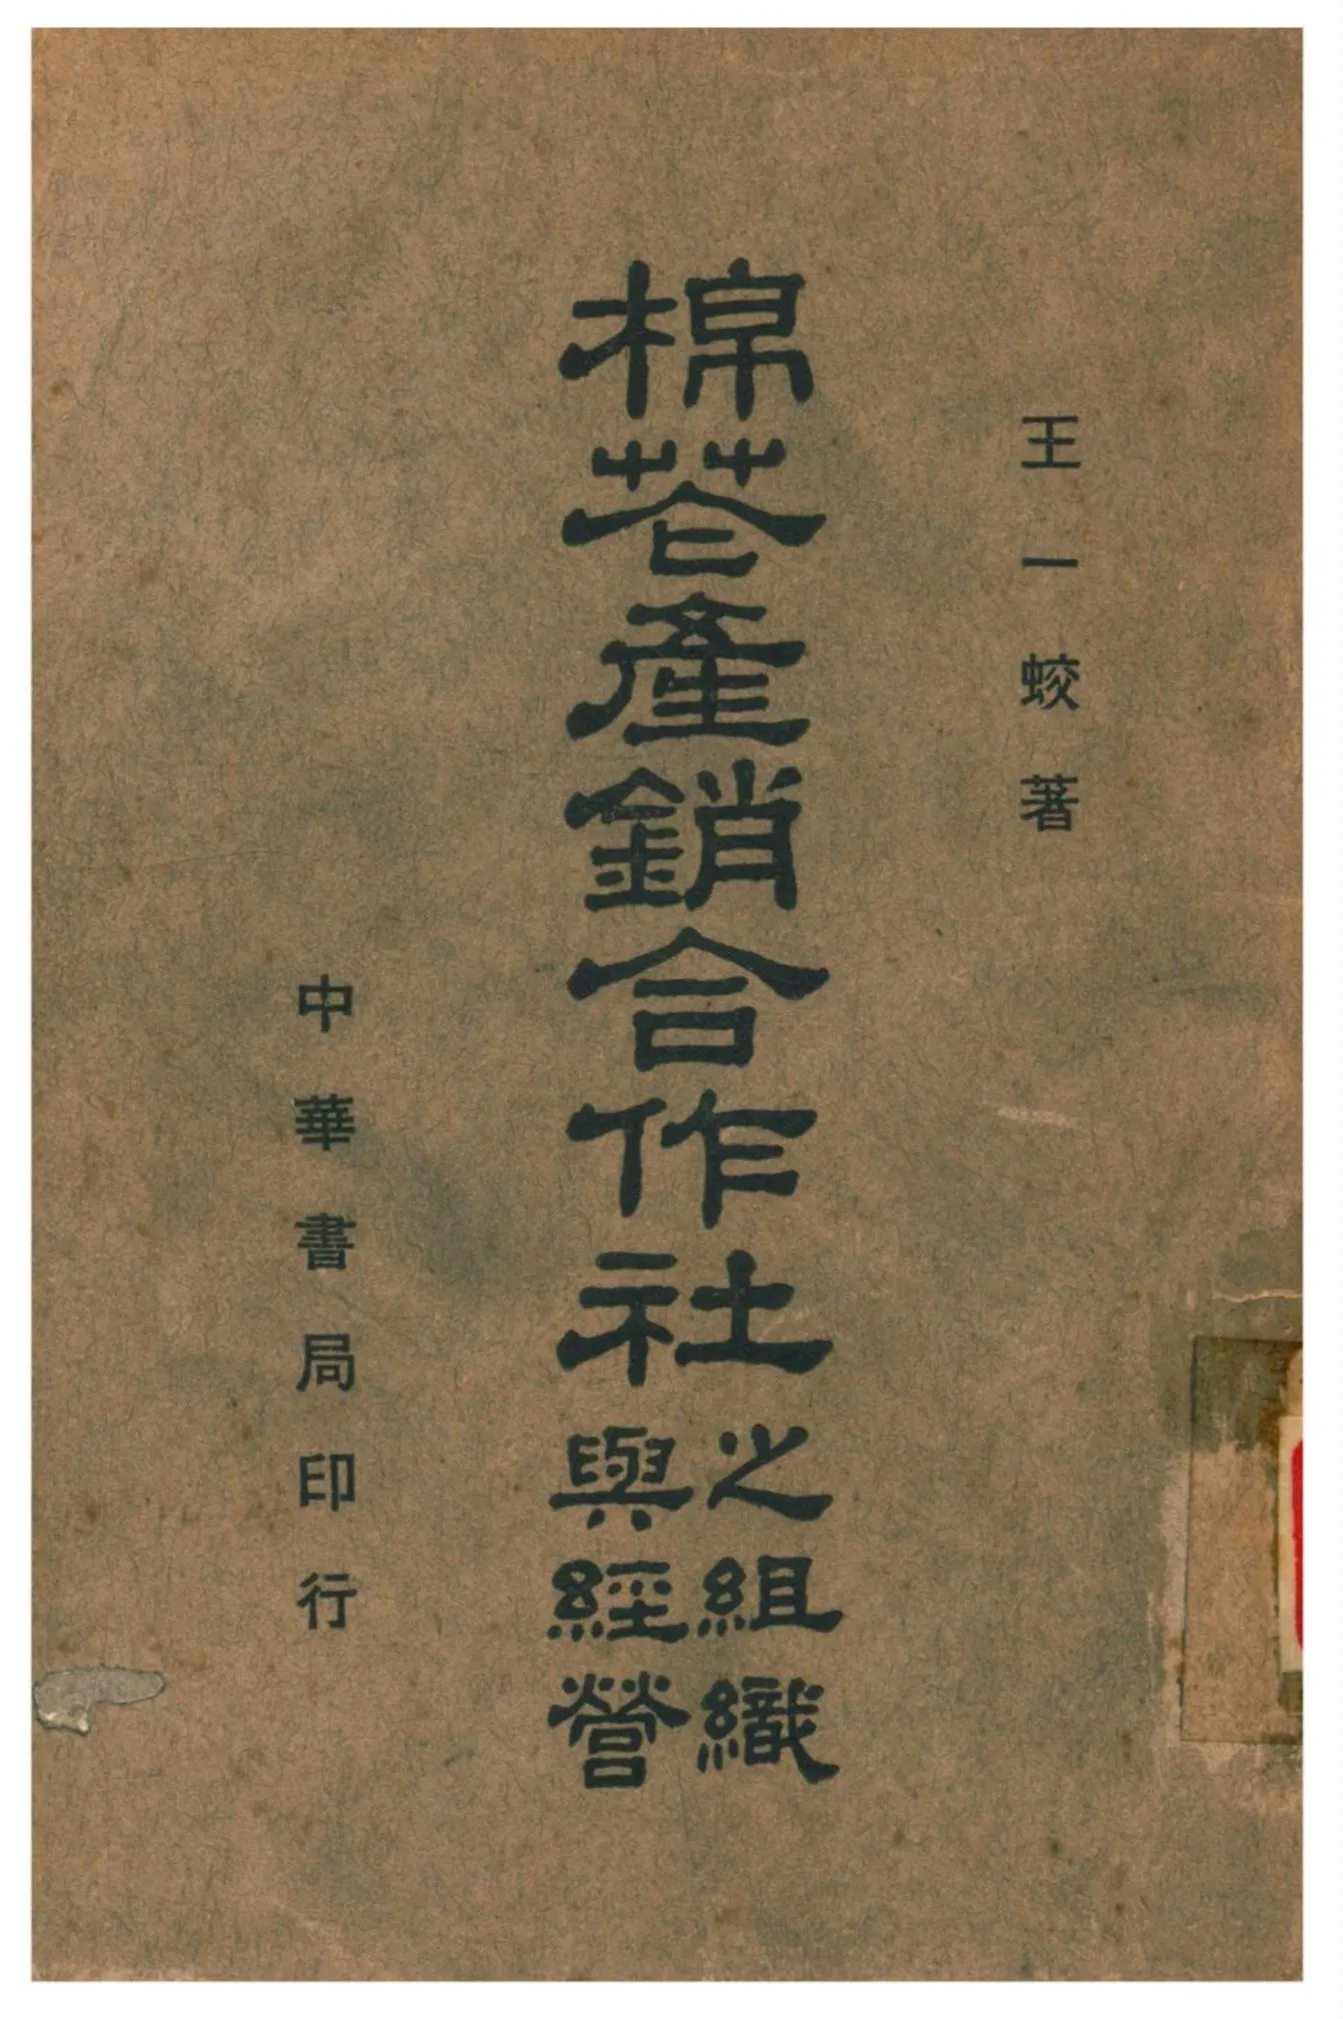 王一蛟著
棉花產銷合作社之組織與經營
中華書局印行